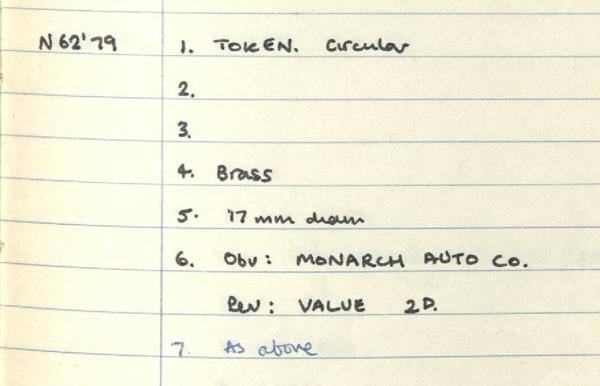 N62'79 1. TOKEN. Circular
2.
3.
4. Brass
5. 17 mm diam
6. Obv: MONARCH AUTO CO.
Rev: VALUE 2D.
7. As above